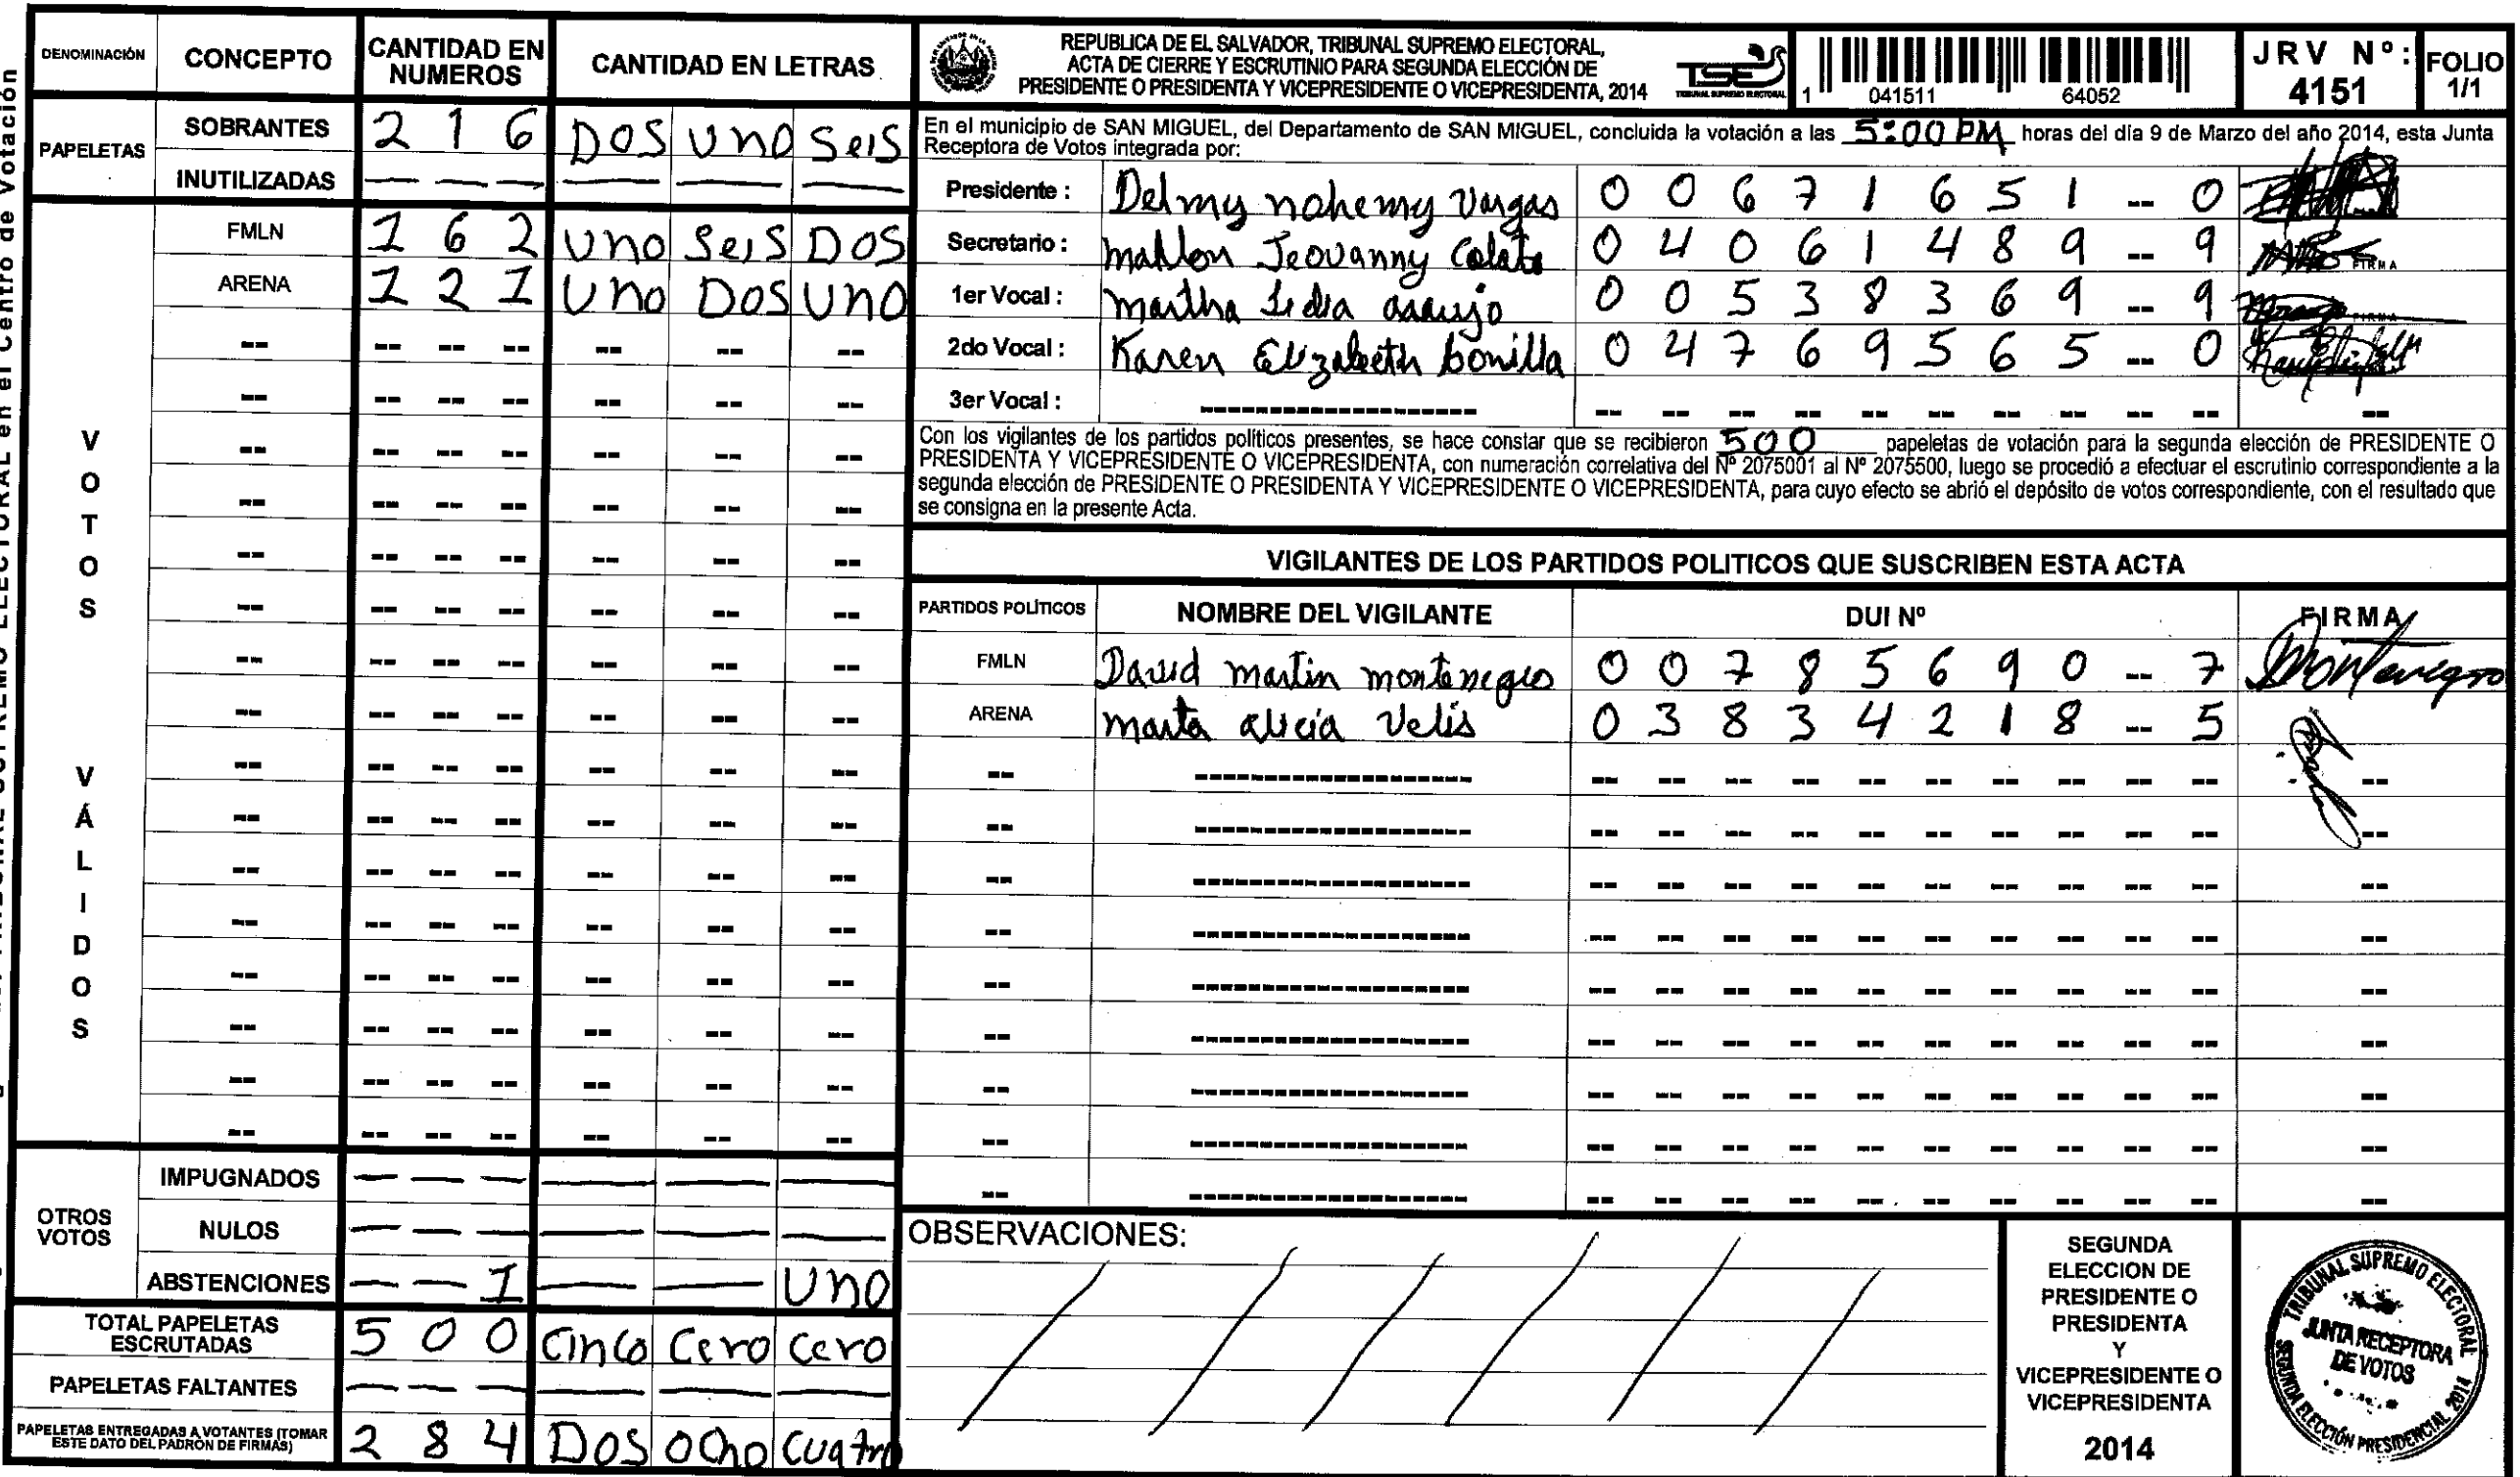 DENOMINACIÓN CONCEPTO CANTIDAD EN NUMEROS CANTIDAD EN LETRAS
PAPELETAS
SOBRANTES 2 1 6 DOS UNO SeIS
INUTILIZADAS — — — — — —
VOTOS VÁLIDOS
FMLN 1 6 2 UNO SeIS DOS
ARENA 1 2 1 UNO DOS UNO
OTROS VOTOS
IMPUGNADOS — — — — — —
NULOS — — — — — —
ABSTENCIONES — — 1 — — UNO
TOTAL PAPELETAS ESCRUTADAS 5 0 0 Cinco Cero Cero
PAPELETAS FALTANTES — — — — — —
PAPELETAS ENTREGADAS A VOTANTES (TOMAR ESTE DATO DEL PADRÓN DE FIRMAS) 2 8 4 DOS OCho Cuatro
REPUBLICA DE EL SALVADOR, TRIBUNAL SUPREMO ELECTORAL,
ACTA DE CIERRE Y ESCRUTINIO PARA SEGUNDA ELECCIÓN DE
PRESIDENTE O PRESIDENTA Y VICEPRESIDENTE O VICEPRESIDENTA, 2014
TSE
TRIBUNAL SUPREMO ELECTORAL
1 041511 64052
JRV Nº: 4151
FOLIO 1/1
En el municipio de SAN MIGUEL, del Departamento de SAN MIGUEL, concluida la votación a las 5:00 PM horas del día 9 de Marzo del año 2014, esta Junta
Receptora de Votos integrada por:
Presidente : Delmy nohemy Vargas 0 0 6 7 1 6 5 1 -- 0
Secretario : Jeovanny 0 4 0 6 1 4 8 9 -- 9 FIRMA
1er Vocal : martha araujo 0 0 5 3 8 3 6 9 -- 9 FIRMA
2do Vocal : Karen Elizabeth bonilla 0 4 7 6 9 5 6 5 -- 0
3er Vocal :
Con los vigilantes de los partidos políticos presentes, se hace constar que se recibieron 500 papeletas de votación para la segunda elección de PRESIDENTE O
PRESIDENTA Y VICEPRESIDENTE O VICEPRESIDENTA, con numeración correlativa del Nº 2075001 al Nº 2075500, luego se procedió a efectuar el escrutinio correspondiente a la
segunda elección de PRESIDENTE O PRESIDENTA Y VICEPRESIDENTE O VICEPRESIDENTA, para cuyo efecto se abrió el depósito de votos correspondiente, con el resultado que
se consigna en la presente Acta.
VIGILANTES DE LOS PARTIDOS POLITICOS QUE SUSCRIBEN ESTA ACTA
PARTIDOS POLÍTICOS NOMBRE DEL VIGILANTE DUI Nº FIRMA
FMLN David martin montenegro 0 0 7 8 5 6 9 0 -- 7 Montenegro
ARENA marta alicia Velis 0 3 8 3 4 2 1 8 -- 5
OBSERVACIONES:
SEGUNDA
ELECCION DE
PRESIDENTE O
PRESIDENTA
Y
VICEPRESIDENTE O
VICEPRESIDENTA
2014
TRIBUNAL SUPREMO ELECTORAL
JUNTA RECEPTORA
DE VOTOS
SEGUNDA ELECCIÓN PRESIDENCIAL 2014